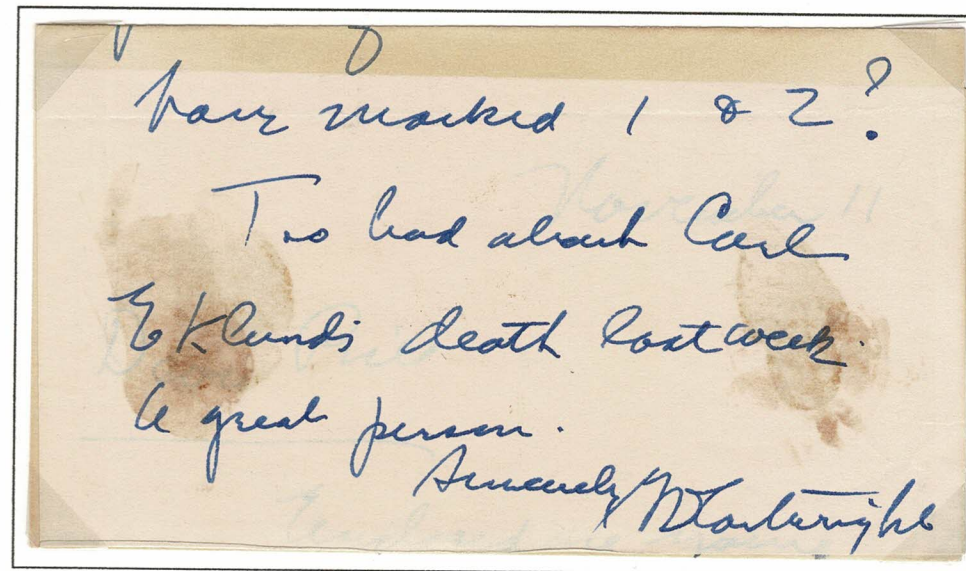 have marked 1 & 2?
Too bad about Carl
Eklund's death last week.
A great person.
Sincerely
November 11